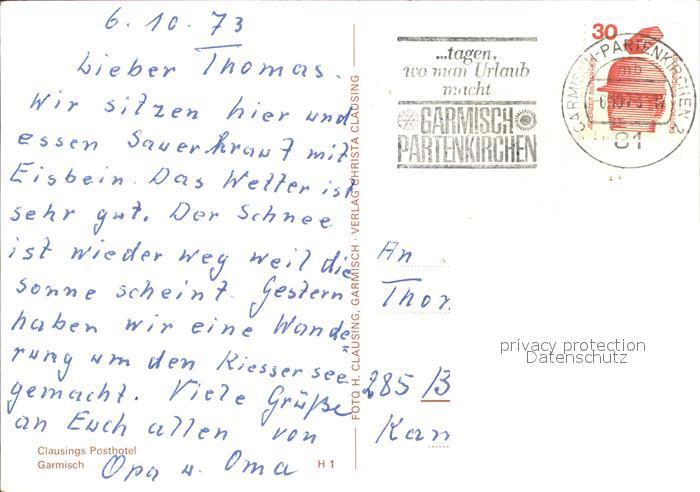 6.10.73
Lieber Thomas.
Wir sitzen hier und
essen Sauerkraut mit
Eisbein. Das Wetter ist
sehr gut. Der Schnee
ist wieder weg weil die
Sonne scheint. Gestern
haben wir eine Wande=
rung um den Riesser see
gemacht. Viele Grüße
an Euch allen von
Opa u. Oma
Clausings Posthotel
Garmisch
H 1
FOTO H. CLAUSING, GARMISCH · VERLAG CHRISTA CLAUSING
...tagen,
wo man Urlaub
macht
GARMISCH
PARTENKIRCHEN
30
GARMISCH-PARTENKIRCHEN 2
mb
81
An
Thom
285 /B
Kar
privacy protection
Datenschutz